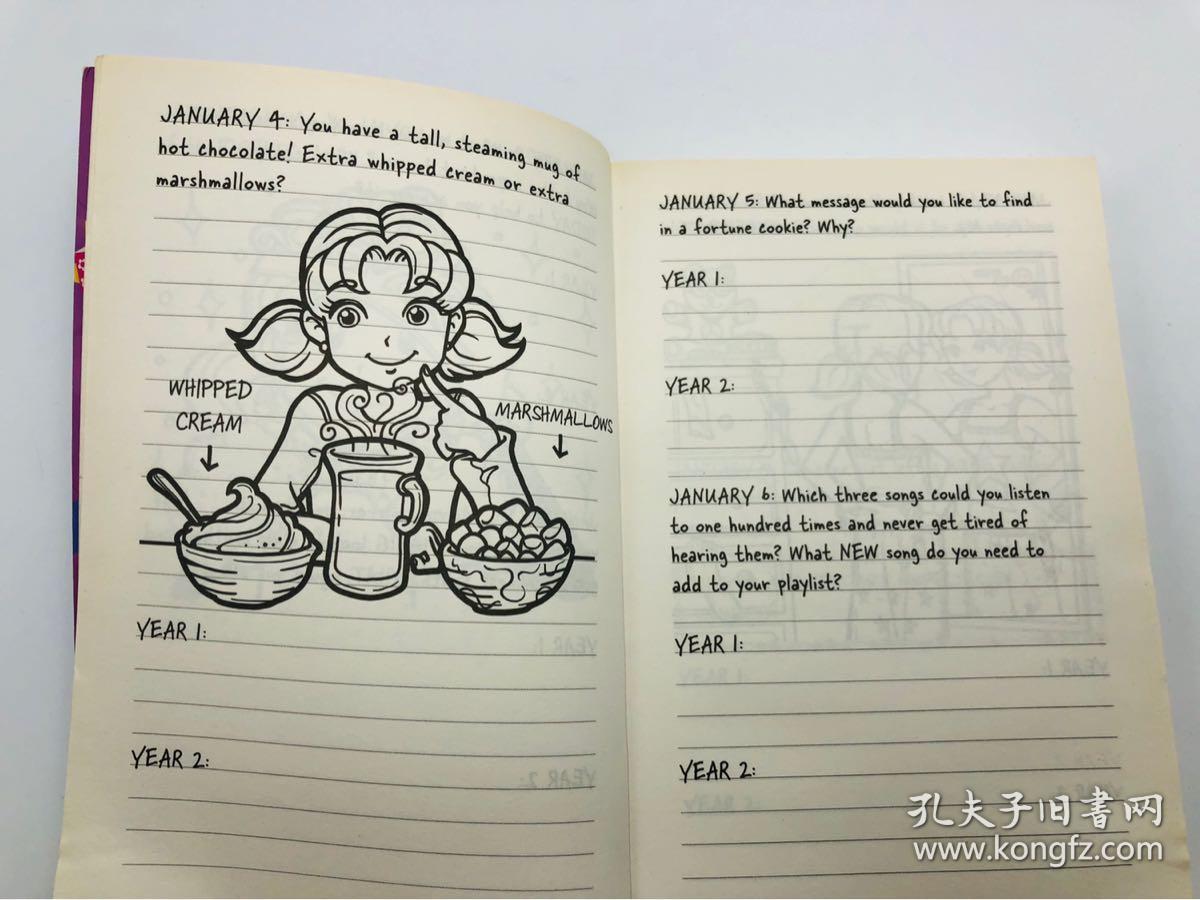 JANUARY 4: You have a tall, steaming mug of
hot chocolate! Extra whipped cream or extra
marshmallows?
WHIPPED
CREAM
MARSHMALLOWS
YEAR 1:
YEAR 2:
JANUARY 5: What message would you like to find
in a fortune cookie? Why?
YEAR 1:
YEAR 2:
JANUARY 6: Which three songs could you listen
to one hundred times and never get tired of
hearing them? What NEW song do you need to
add to your playlist?
YEAR 1:
YEAR 2:
孔夫子旧书网
www.kongfz.com